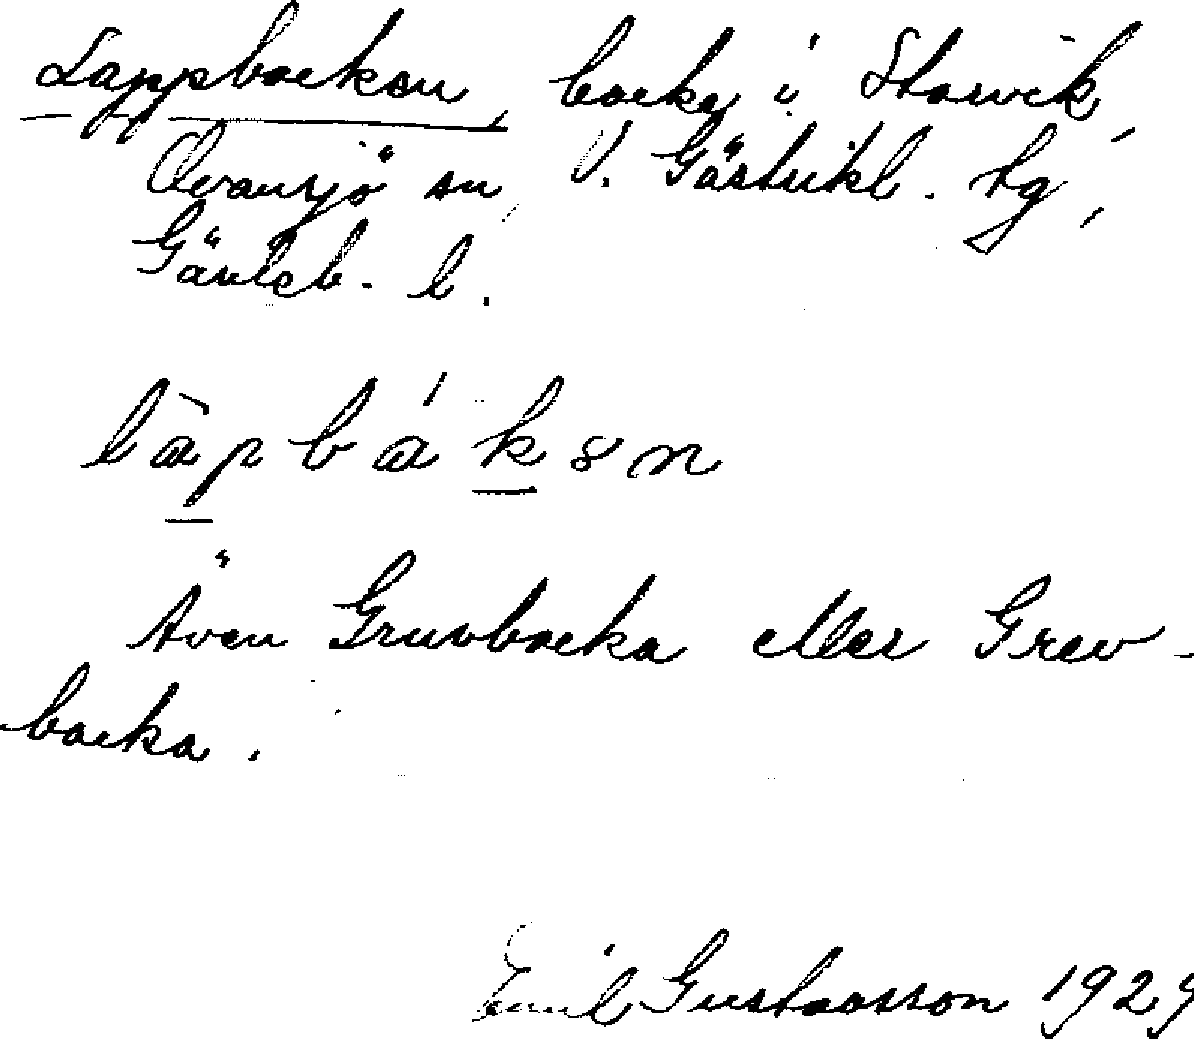 Lappbacken, backe i Storvik,
Ovansjö sn, V. Gästrikl. tg,
Gävleb. l.
làpbákən
Även Gruvbacka eller Grev-
backa.
Emil Gustavsson 1929